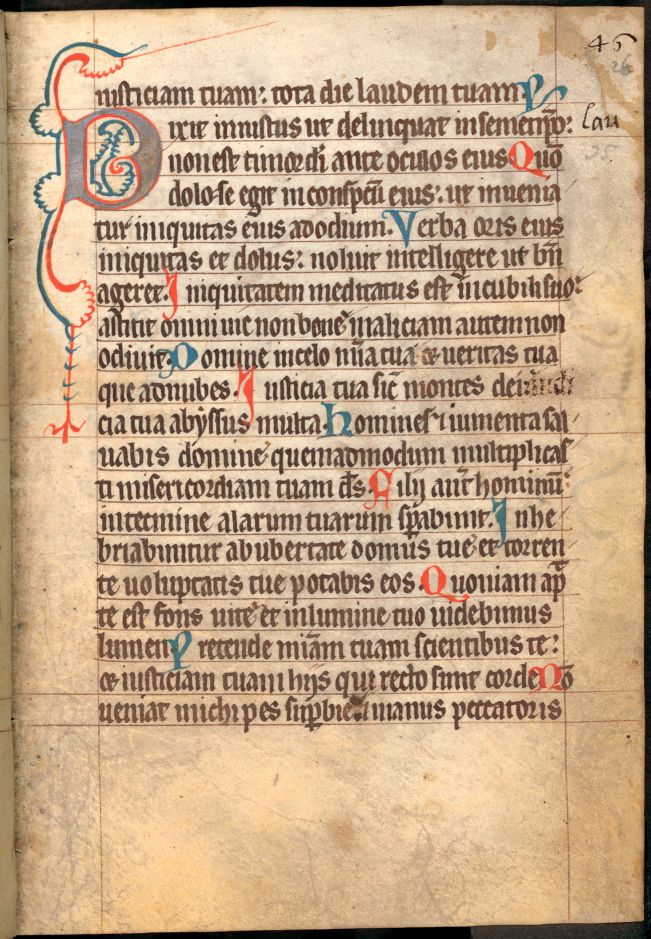 46
26
iusticiam tuam: tota die laudem tuam. p̄s
Dixit iniustus ut delinquat in semetip̄o: lau
non est timor dī ante oculos eius Quō 25
dolose egit in conspectu eius: ut invenia
tur iniquitas eius ad odium. Verba oris eius
iniquitas et dolus: noluit intelligere ut bn̄
ageret. Iniquitatem meditatus est in cubili suo:
astitit omni vie non bone maliciam autem non
odiuit. Domine in celo mīa tua & veritas tua
que ad nubes. Iusticia tua sic̄ montes dei: iudi
cia tua abyssus multa. Homines & iumenta sal
uabis domine quemadmodum multiplicas
ti misericordiam tuam d̄s. Filij aut̄ hominū:
in tecmine alarum tuarum sp̄abunt. Inhe
briabuntur ab ubertate domus tue: et torren
te uoluptatis tue potabis eos. Quoniam ap̄
te est fons uite: et in lumine tuo uidebimus
lumen. Pretende mīam tuam scientibus te:
& iusticiam tuam hijs qui recto sunt corde Nō
ueniat michi pes sup̄bie: & manus peccatoris